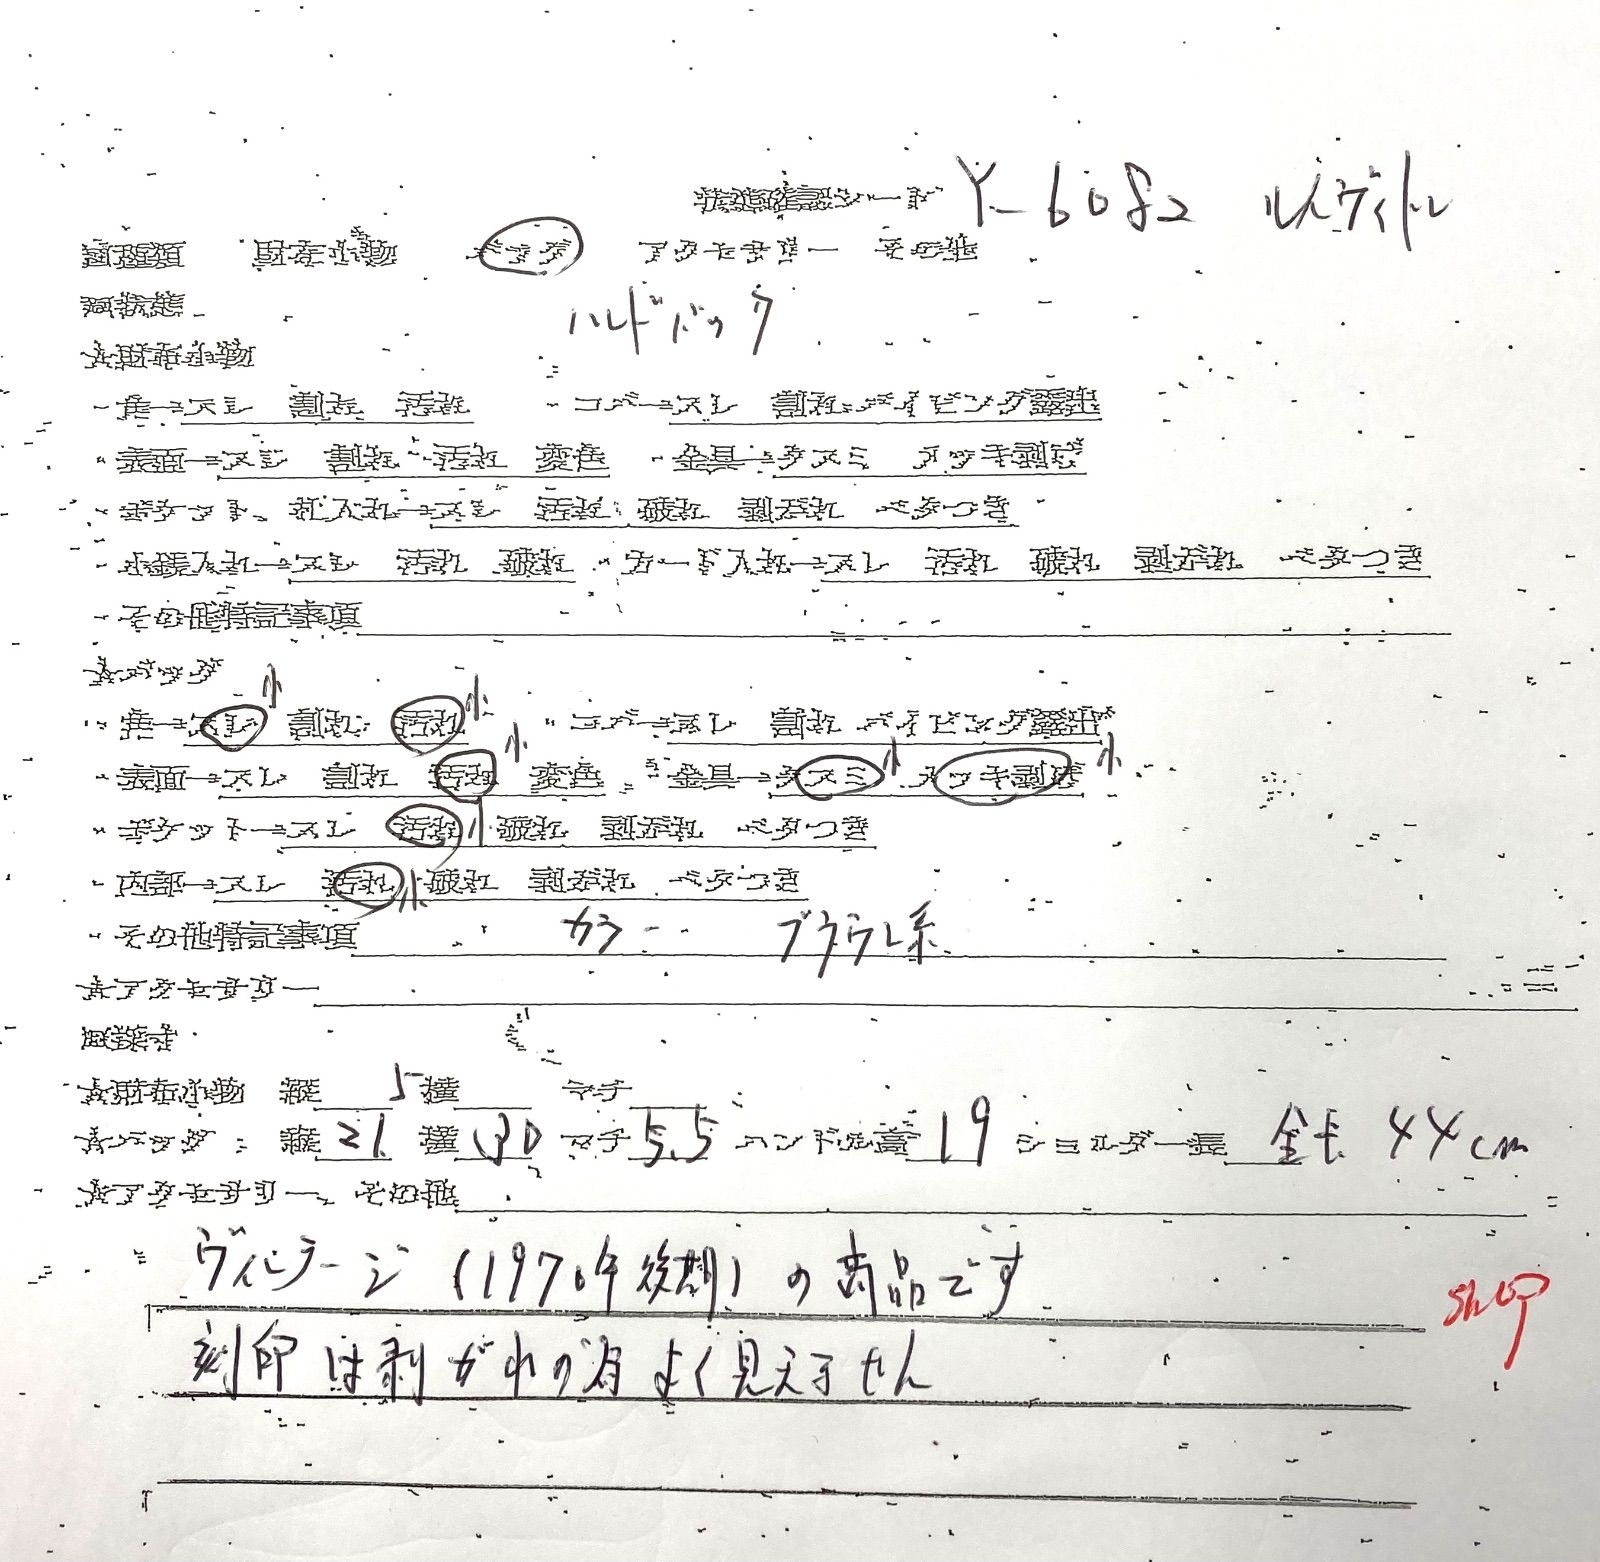 状態確認シート Y-6082 ルイヴィトン
財布小物 バッグ アクセサリー その他
ハンドバック
☆財布小物
・角→スレ 割れ 汚れ ・コバ→スレ 割れ パイピング露出
・表面→スレ 割れ 汚れ 変色 ・金具→クスミ メッキ剥げ
・ポケット、札入れ→スレ 汚れ 破れ 剥がれ ベタつき
・小銭入れ→スレ 汚れ 破れ ・カード入れ→スレ 汚れ 破れ 剥がれ ベタつき
・その他特記事項
☆バッグ
・角→スレ小 割れ 汚れ小 ・コバ→スレ 割れ パイピング露出
・表面→スレ 割れ 汚れ小 変色 ・金具→クスミ小 メッキ剥げ小
・ポケット→スレ 汚れ小 破れ 剥がれ ベタつき
・内部→スレ 汚れ小 破れ 剥がれ ベタつき
・その他特記事項 カラー ブラウン系
☆アクセサリー
☆財布小物 縦 横 マチ
☆バッグ 縦 21 横 30 マチ 5.5 ハンドル高 19 ショルダー長 全長 44cm
☆アクセサリー、その他
ヴィンテージ (1970年後期) の商品です
刻印は剥がれの為よく見えません
SHOP